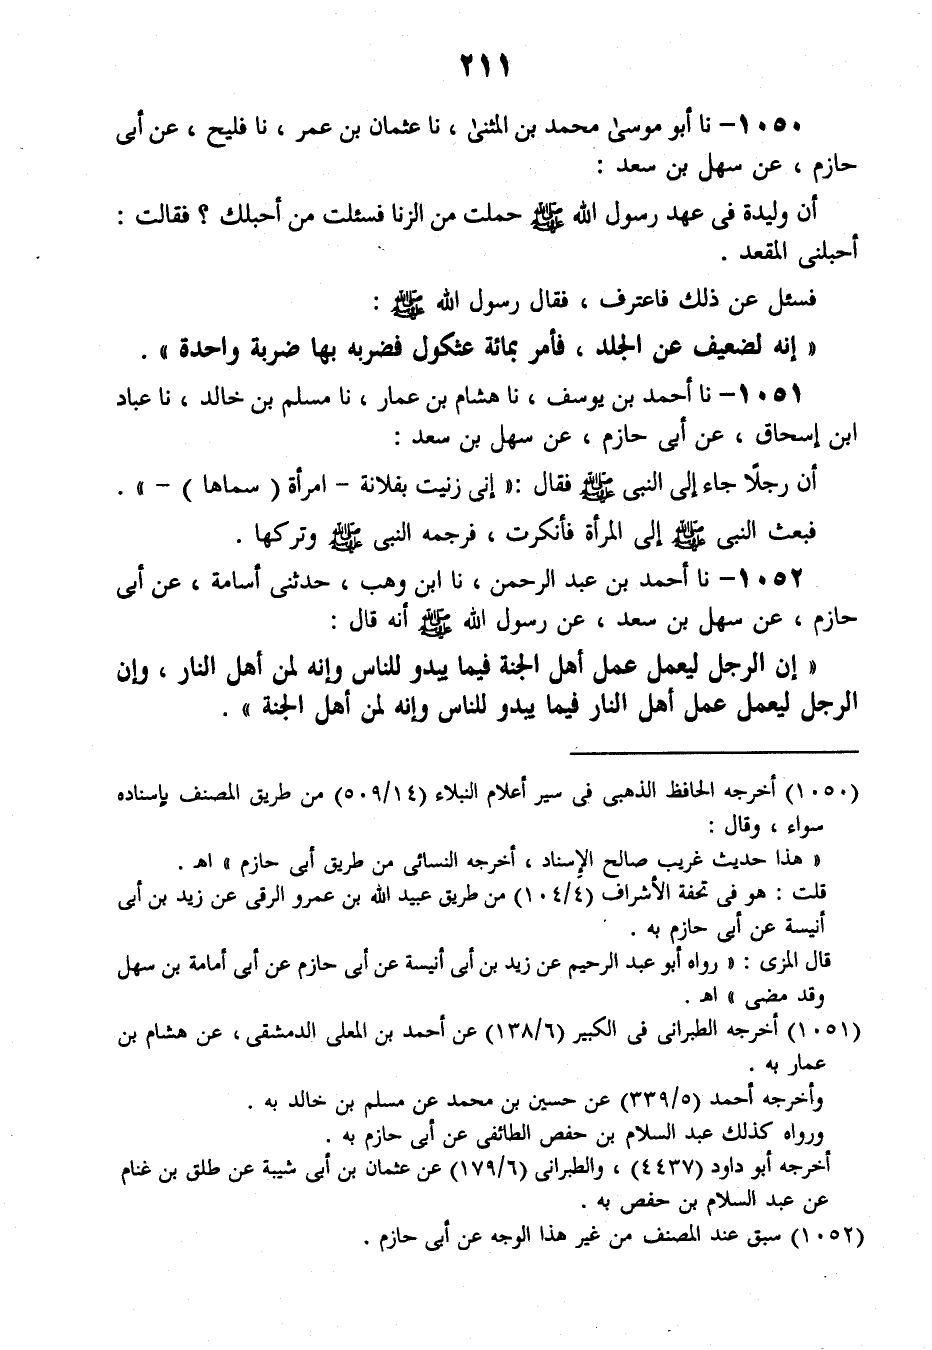 ٢١١
١٠٥٠- نا أبو موسىٰ محمد بن المثنىٰ ، نا عثمان بن عمر ، نا فليح ، عن أبى
حازم ، عن سهل بن سعد :
أن وليدة فى عهد رسول الله ﷺ حملت من الزنا فسئلت من أحبلك ؟ فقالت :
أحبلنى المقعد .
فسئل عن ذلك فاعترف ، فقال رسول الله ﷺ :
« إنه لضعيف عن الجلد ، فأمر بمائة عثكول فضربه بها ضربة واحدة » .
١٠٥١- نا أحمد بن يوسف ، نا هشام بن عمار ، نا مسلم بن خالد ، نا عباد
ابن إسحاق ، عن أبى حازم ، عن سهل بن سعد :
أن رجلًا جاء إلى النبى ﷺ فقال :« إنى زنيت بفلانة - امرأة ( سماها ) - » .
فبعث النبى ﷺ إلى المرأة فأنكرت ، فرجمه النبى ﷺ وتركها .
١٠٥٢- نا أحمد بن عبد الرحمن ، نا ابن وهب ، حدثنى أسامة ، عن أبى
حازم ، عن سهل بن سعد ، عن رسول الله ﷺ أنه قال :
« إن الرجل ليعمل عمل أهل الجنة فيما يبدو للناس وإنه لمن أهل النار ، وإن
الرجل ليعمل عمل أهل النار فيما يبدو للناس وإنه لمن أهل الجنة » .
(١٠٥٠) أخرجه الحافظ الذهبى فى سير أعلام النبلاء (٥٠٩/١٤) من طريق المصنف بإسناده
سواء ، وقال :
« هذا حديث غريب صالح الإسناد ، أخرجه النسائى من طريق أبى حازم » اهـ .
قلت : هو فى تحفة الأشراف (١٠٤/٤) من طريق عبيد الله بن عمرو الرقى عن زيد بن أبى
أنيسة عن أبى حازم به .
قال المزى : « رواه أبو عبد الرحيم عن زيد بن أبى أنيسة عن أبى حازم عن أبى أمامة بن سهل
وقد مضى » اهـ .
(١٠٥١) أخرجه الطبرانى فى الكبير (١٣٨/٦) عن أحمد بن المعلى الدمشقى ، عن هشام بن
عمار به .
وأخرجه أحمد (٣٣٩/٥) عن حسين بن محمد عن مسلم بن خالد به .
ورواه كذلك عبد السلام بن حفص الطائفى عن أبى حازم به .
أخرجه أبو داود (٤٤٣٧) ، والطبرانى (١٧٩/٦) عن عثمان بن أبى شيبة عن طلق بن غنام
عن عبد السلام بن حفص به .
(١٠٥٢) سبق عند المصنف من غير هذا الوجه عن أبى حازم .